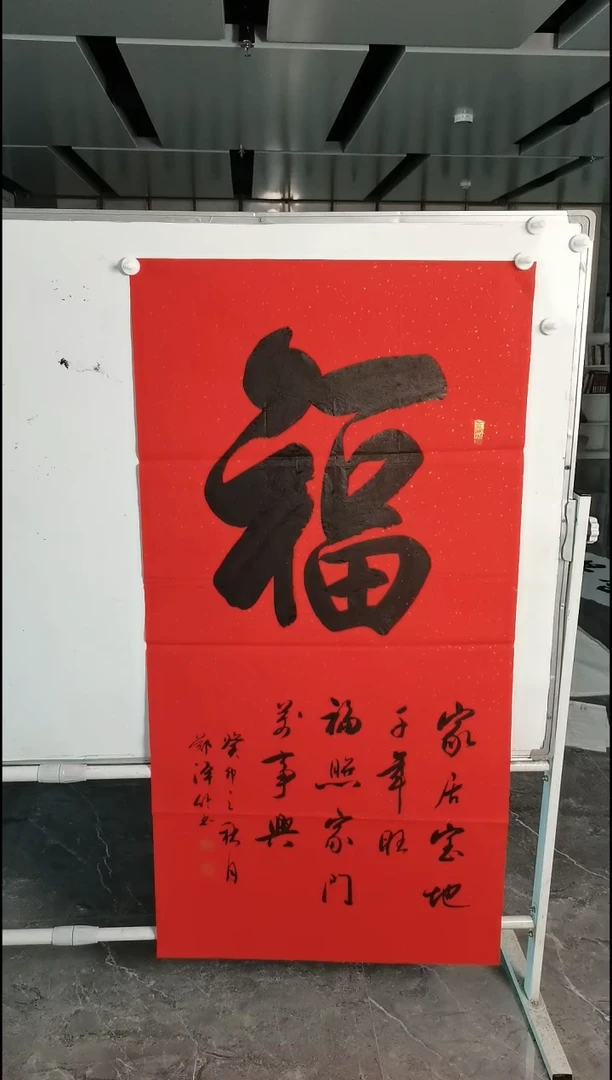 福
家居宝地
千年旺
福照家门
万事興
癸卯之秋月
郑泽